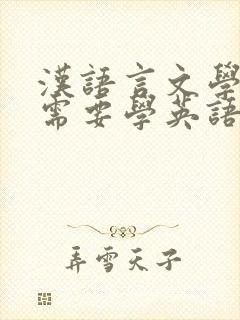 漢語言文學
需要學英語
弄雪天子